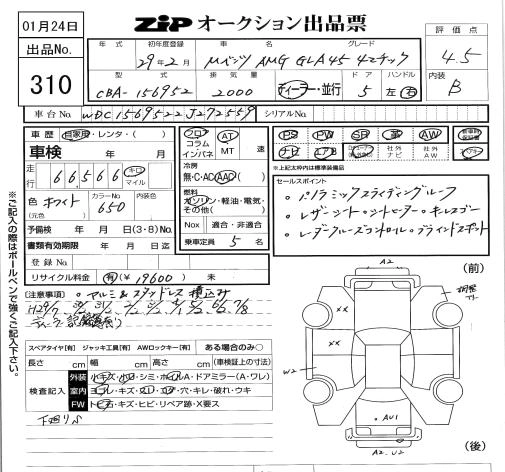 01月24日
ZIP オークション出品票
出品No.
310
評価点
4.5
内装
B
年式 初年度登録 車名 グレード
29年2月 Mベンツ AMG GLA45 4マチック
型式 排気量 ドア ハンドル
CBA-156952 2000 ディーラー・並行 5 左 右
車台No. WDC1569522J272559 シリアルNo.
車歴 自家用・レンタ・( )
車検 年 月
走行 66566 キロ マイル
色 (元色) ホワイト カラーNo. 650 内装色
予備検 年 月 日(3・8)No.
書類有効期限 年 月 日迄
登録No.
リサイクル料金 有(¥19600) 未
フロア コラム インパネ
AT MT 速
冷房
無・C・AC(AAC)( )
燃料
ガソリン・軽油・電気・その他( )
Nox 適合・非適合
乗車定員 5 名
PS PW SR 革 AW
ナビ エアB 社外ナビ 社外AW
*上記太枠内は標準装備品
セールスポイント
・パノラミックスライディングルーフ
・レザーシート・シートヒーター・キーレスゴー
・レーダークルーズコントロール・ブラインドスポット
[注意事項] ・アルミ&スタッドレス積込み
スペアタイヤ[有] ジャッキ工具[有] AWロックキー[有] ある場合のみ○
長さ cm 幅 cm 高さ cm (車検証上の寸法)
検査記入
外装 小キズ・小凹・シミ・ホイルA・ドアミラー(A・ワレ)
室内 ヨゴレ・キズ・スレ・コゲ・穴・キレ・破れ・ウキ
FW トビ石・キズ・ヒビ・リペア跡・X要ス
※ご記入の際はボールペンで強くご記入下さい。
(前)
A2
XX
XX
W2
AU1
A2.U2
(後)